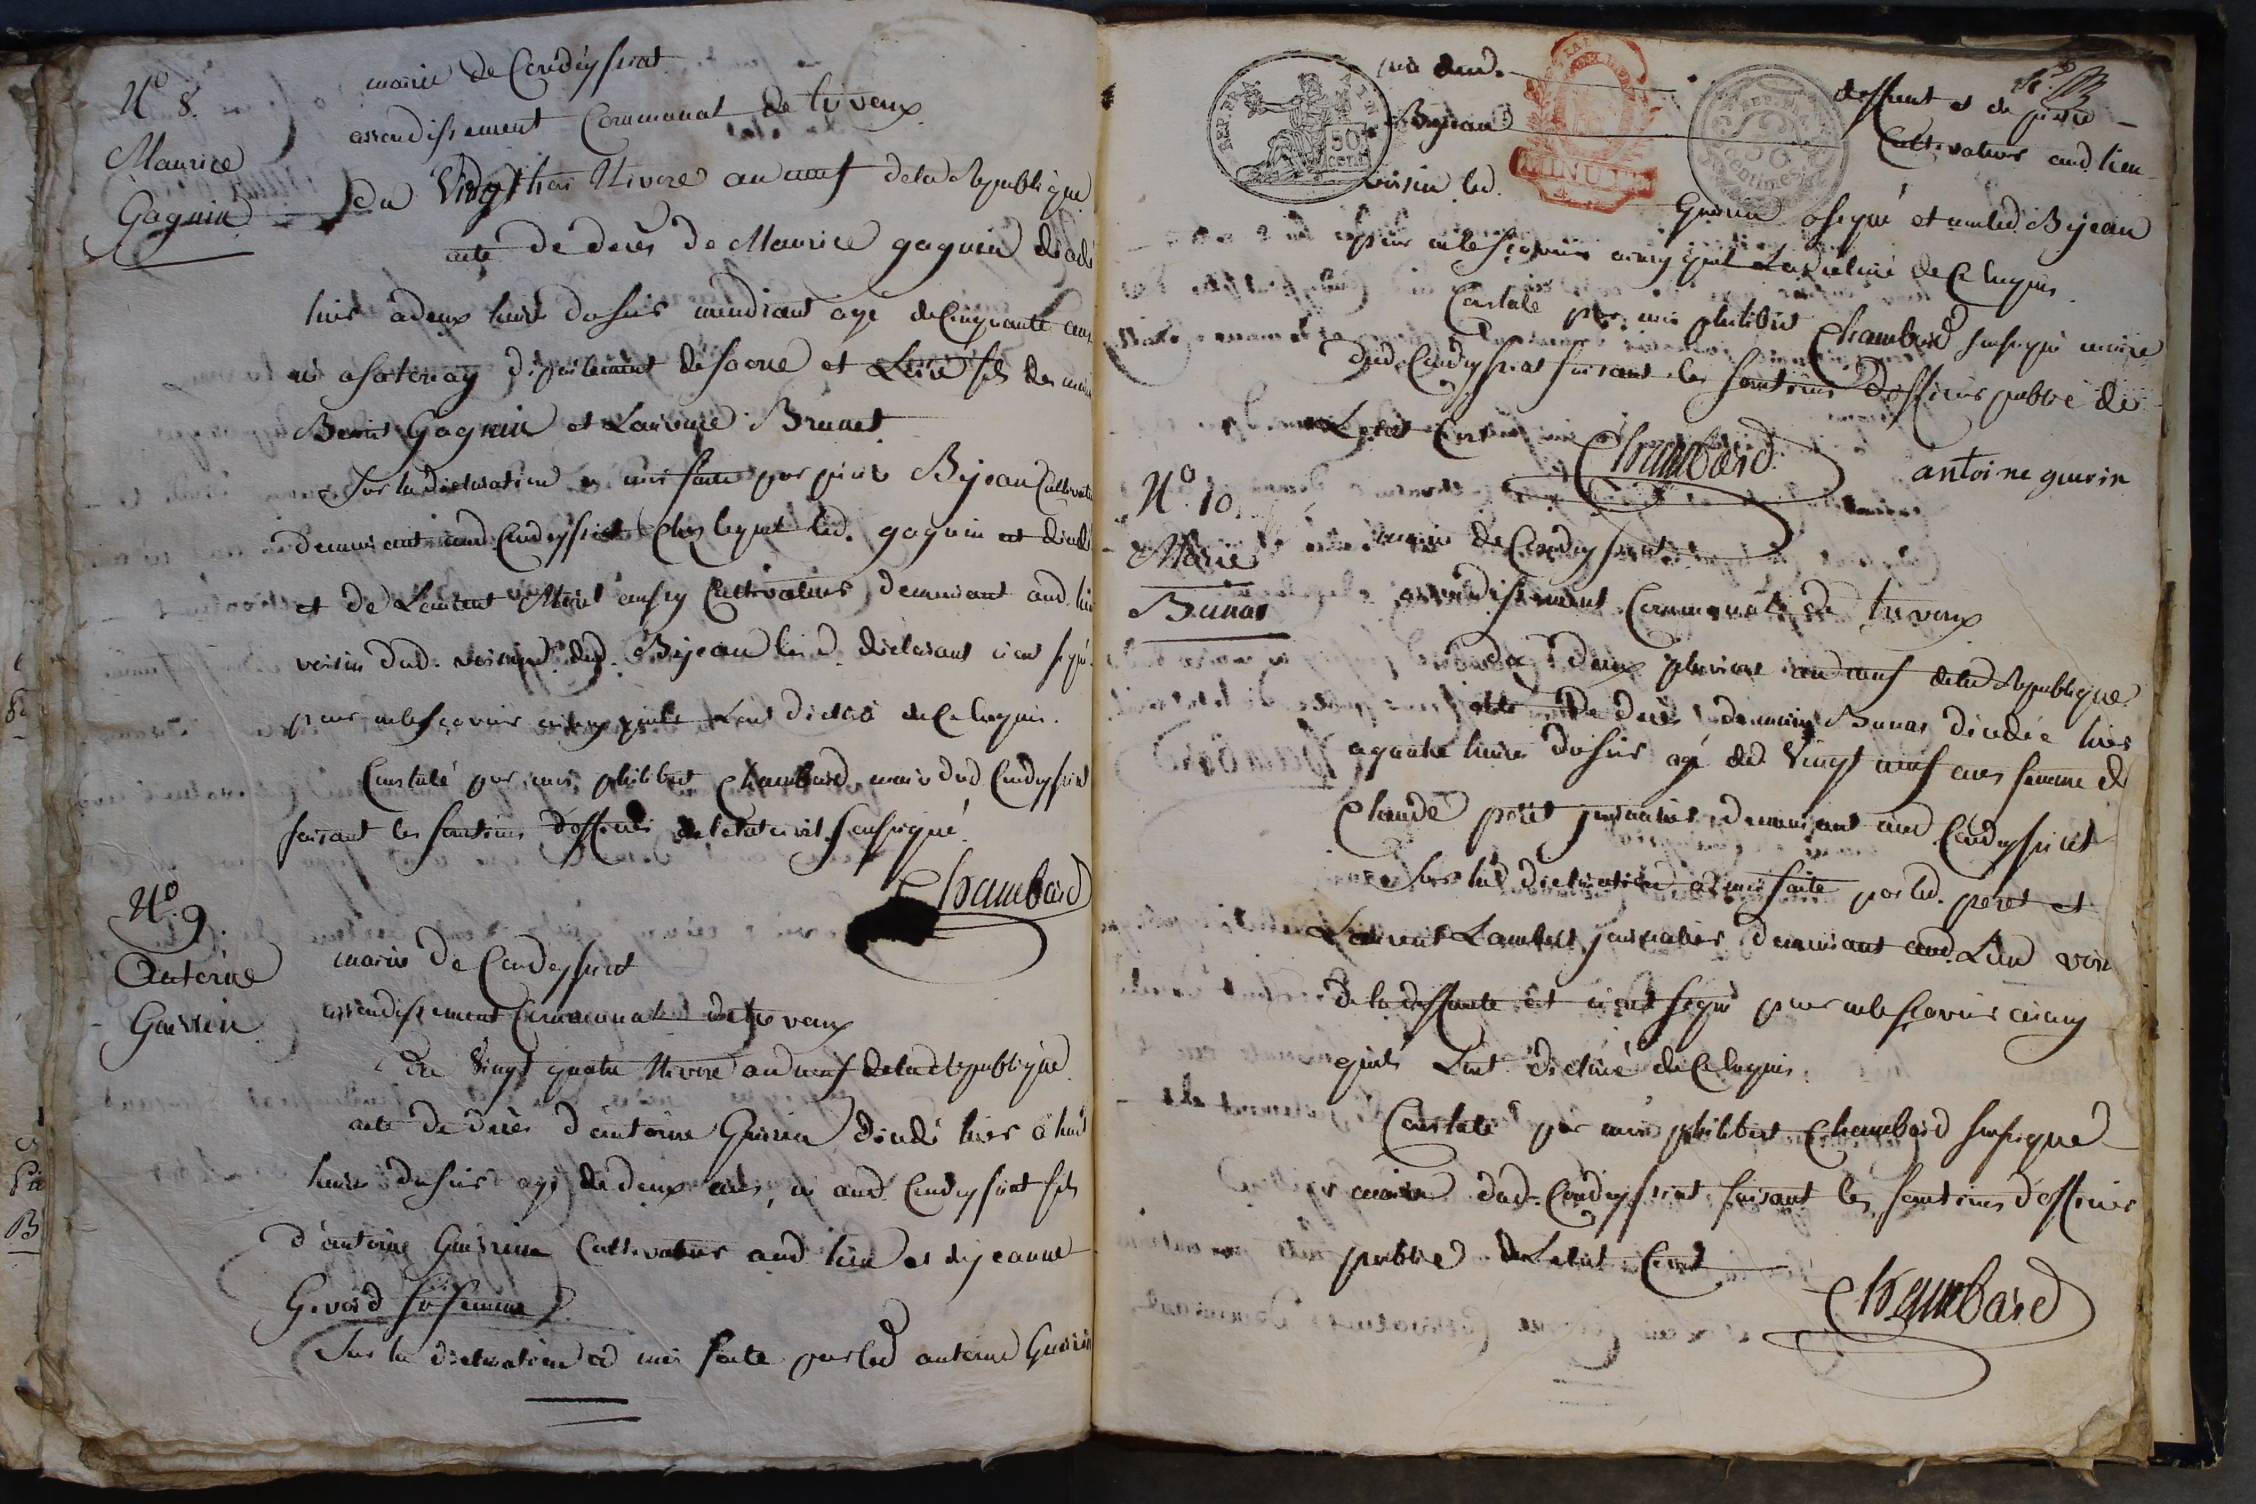 N.o 8.
Maurice
Gagnin
mairie de Condeyssiat
arrondissement Communal de trevoux
du Vingt trois Nivose an neuf de la Republique
acte de decès de Maurice gagnin decedé
hier a deux heures du soir mendiant agé de Cinquante ans
né a departement de saone et Loire fils de
Benoit Gagnin et Laurence Brunet
Sur la declaration a moi faite par pierre Bijean Cultivateur
demeurant aud. Condeyssiat Chez lequel led. gagnin est decedé
et de Laurent aussy Cultivateur demeurant aud. lieu
voisin dud. Bijean declarant
pour ne le sçavoir ainsy qu'ils L'ont declaré de Ce Enquis.
Constaté par moi philibert Chambard maire dud Condeyssiat
faisant les fonctions d'officier de l'etat civil soussigné.
Chambard
N.o 9.
Antoine
Guerin
mairie de Condeyssiat
arrondissement Communal de trevoux
du Vingt quatre Nivose an neuf de la Republique
acte de decès d'antoine Guerin decedé hier a huit
heures du soir agé de deux ans, né aud. Condeyssiat fils
d'antoine Guerin Cultivateur aud lieu et de jeanne
Gevard sa femme
Sur la declaration a moi faite par led antoine Guerin
deffunt et de pierre
Bijean Cultivateur aud. lieu
voisin led. Guerin a signé et non led. Bijean
pour ne le sçavoir ainsy qu'il L'a declaré de Ce Enquis
Constaté par moi philibert Chambard soussigné maire
dud. Condeyssiat faisant les fonctions d'officier public de
L'etat Civil
REP. FRA.
50
cent.
MINUTE
REP. FRA.
50
centimes
Chambard
antoine guerin
N.o 10.
Marie
Bunas
mairie de Condeyssiat
arrondissement Communal de trevoux
du deux pluviose an neuf de la Republique
acte de decès de marie Bunas decedée hier
a quatre heures du soir agé de Vingt neuf ans femme de
Claude peret journalier demeurant aud Condeyssiat
Sur la declaration a moi faite par led. peret et
Laurent Lambert journalier demeurant aud. Lieu voisin
de la deffunte et n'ont signé pour ne le sçavoir ainsy
qu'ils L'ont declaré de Ce Enquis
Constaté par moi philibert Chambard soussigné
maire dud. Condeyssiat faisant les fonctions d'officier
public de L'etat Civil
Chambard